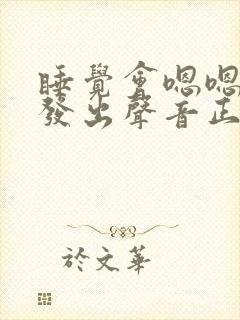 睡覺會嗯嗯
發出聲音正
於文華